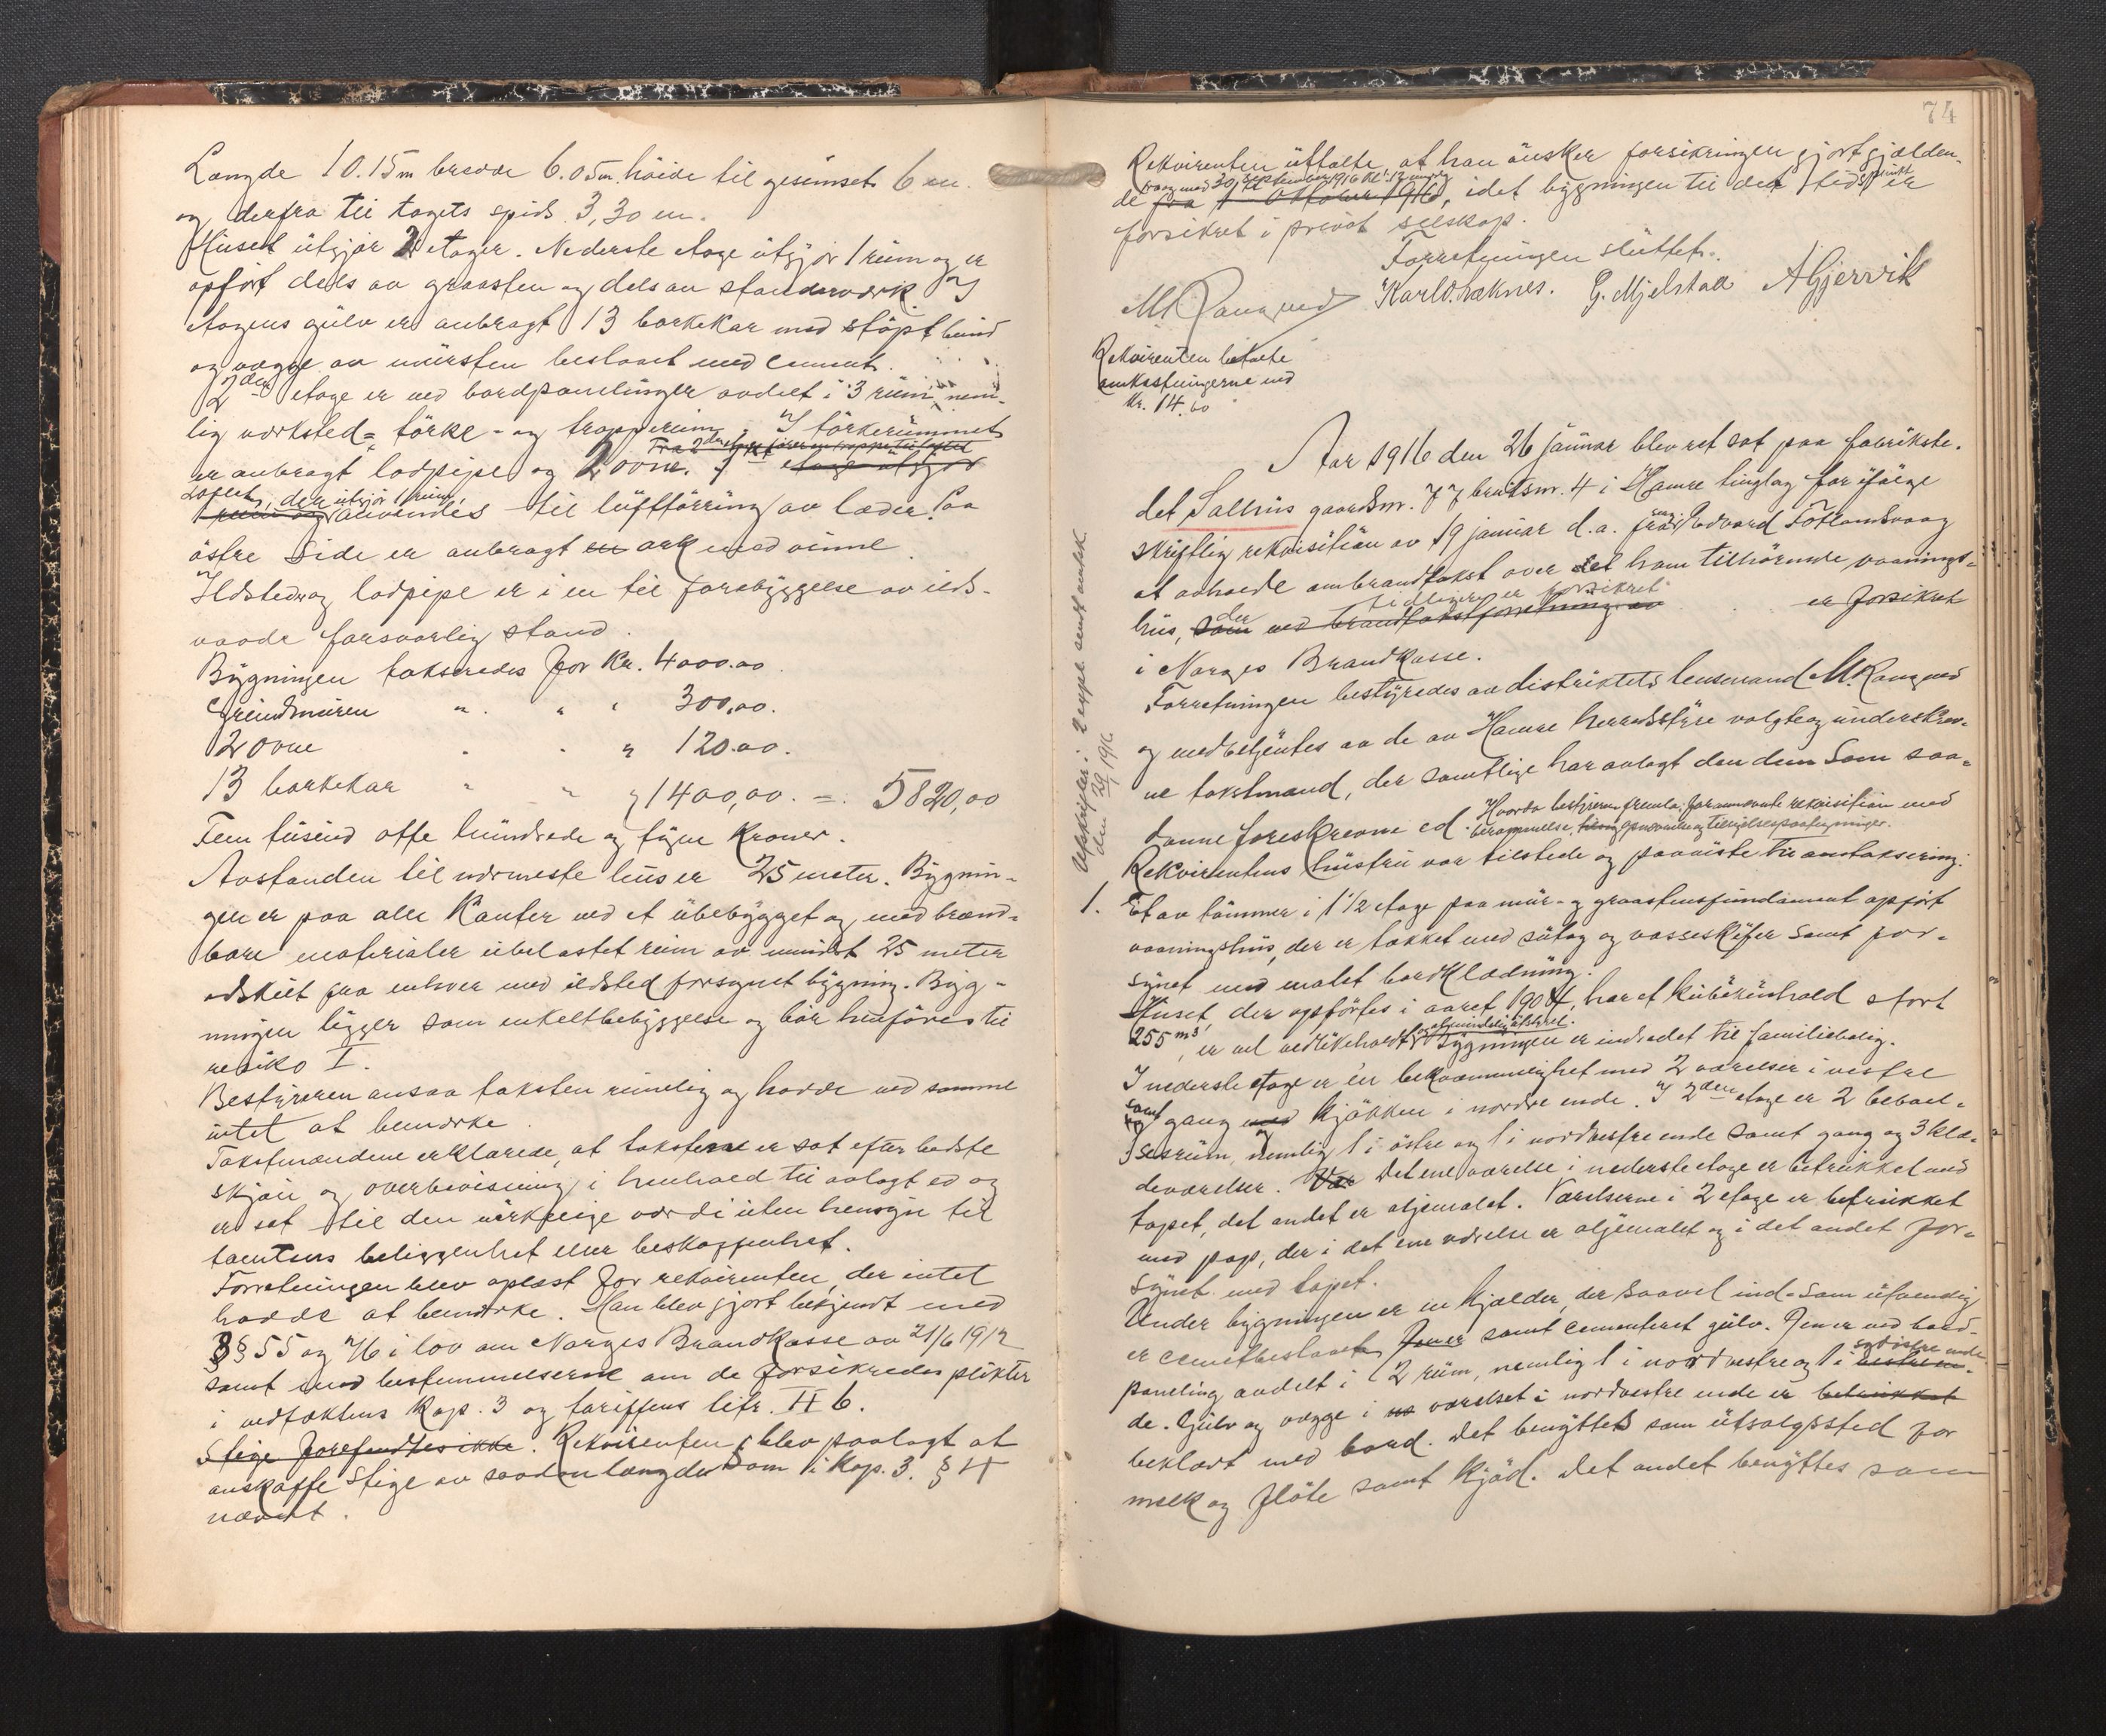 Længde 10.15m bredde 6.05m. höide til gesimset 6 m.
og derfra til tagets spids 3,30 m.
Huset utgjör 2 etager. Nederste etage utgjör 1 rum og er
opfört dels av graasten og dels av standerværk. I
etagens gulv er anbragt 13 barkekar med stöpt bund
og vægge av mursten beslaaet med cement.
2den etage er ved bordpanelinger avdelt i 3 rum, nem-
lig verksted-, törke- og trapperum. I törkerummet
Fra 2den etage förer en trappe til loftet
er anbragt lodpipe og 2 ovne. 3 etage utgjör
Loftet, der utgjör 1 rum,
1 rum og anvendes til lufttörring av læder. Paa
östre side er anbragt en ark med vinne.
Ildsted og lodpipe er i en til forebyggelse av ilds-
vaade forsvarlig stand.
Bygningen takseredes for Kr. 4000.00.
Grundmuren " " " 300,00.
2 ovne " " " 120.00.
13 barkekar " " " 1400,00. = 5820,00
Fem tusind otte hundrede og tyve Kroner.
Avstanden til nærmeste hus er 25 meter. Bygnin-
gen er paa alle Kanter ved et ubebygget og med brænd-
bare materialer ubelastet rum av mindst 25 meter
adskilt fra enhver med ildsted forsynet bygning. Byg-
ningen ligger som enkeltbebyggelse og bör henföres til
risiko I.
Bestyreren ansaa taksten rimelig og hadde ved samme
intet at bemerke.
Takstmændene erklærede, at taksterne er sat efter bedste
skjön og overbevisning i henhold til avlagt ed og
er sat til den virkelige værdi uten hensyn til
tomtens beliggenhet eller beskaffenhet.
Forretningen blev oplæst for rekvirenten, der intet
hadde at bemerke. Han blev gjort bekjendt med
§§ 55 og 76 i lov om Norges Brandkasse av 21/6 1912
samt med bestemmelserne om de forsikredes plikter
i vedtæktens Kap. 3 og tariffens litr. II 6.
Stige forefandtes ikke. Rekvirenten blev paalagt at
anskaffe stige av saadan længde som i Kap. 3. § 4
nævnt.
74
Rekvirenten uttalte, at han önsker forsikringen gjort gjælden-
fra og med 30 september 1916 kl. 12 middag
de fra 1 Oktober 1916, idet bygningen til det tidspunkt er
forsikret i privat selskap.
Forretningen sluttet.
M Rangnes Karl O. Læknes. G. Mjelstad A Gjervik
Rekvirenten betalte
omkostningerne med
Kr. 14.60
Aar 1916 den 26 januar blev ret sat paa fabrikste-
det Salhus gaardsnr. 77 bruksnr. 4 i Hamre tinglag for ifölge
skriftlig rekvisition av 19 januar d.a. fra Edvard Totlandsvaag
at avholde ombrandtakst over det ham tilhörende vaanings-
tidligere er forsikret
hus, der som ved brandtakstforretning av er forsikret
i Norges Brandkasse.
Forretningen bestyredes av distriktets lensmand M. Rangnes
og medbetjentes av de av Hamre herredsstyre valgte og underskrev-
ne takstmænd, der samtlige har avlagt den dem som saa-
danne foreskrevne ed. Hvorda bestyreren fremla foranværte rekvisition med
berammelse, gjenværende og tilsigelsespaategninger.
Utskrifter i 2 expl. sendt amtsk
den 29/ 1916
Rekvirentens hustru var tilstede og paaviste til omtaksering:
1. Et av tömmer i 1 1/2 etage paa mur- og graastensfundament opfört
vaaningshus, der er takket med sutag og vasseskifer samt for-
synet med malet bordklædning.
Huset, der opförtes i aaret 1904, har et kubikindhold stort
og almindelig utstyret.
255 m3, er vel vedlikeholdt. Bygningen er indredet til familiebolig.
I nederste etage er én bekvæmmelighet med 2 værelser i vestre
samt gang med og kjökken i nordre ende. I 2den etage er 2 beboel-
sesrum, nemlig 1 i östre og 1 i nordvestre ende samt gang og 3 klæ-
deværelser. Vær Det ene værelse i nederste etage er betrukket med
tapet, det andet er oljemalet. Værelserne i 2 etage er betrukket
med pap, der i det ene værelse er oljemalet og i det andet for-
synet med tapet.
Under bygningen er en kjælder, der saavel ind- som utvendig
er cementbeslaaet, samt cementeret gulv. Den er ved bord-
sydöstre ende
paneling avdelt i 2 rum, nemlig 1 i nordvestre og 1 i vestre en-
de. Gulv og vægge i værelset i nordvestre ende er betrukket
beklædt med bord. Det benyttes som utsalgssted for
melk og flöte samt kjöd. Det andet benyttes som